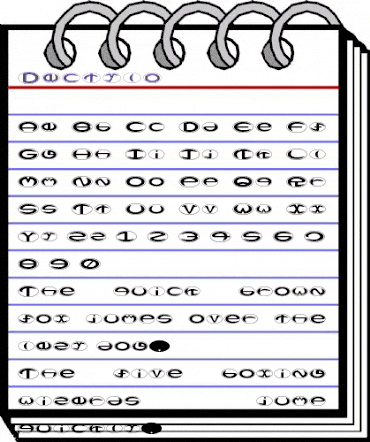 Dectrio
Aa Bb Cc Dd Ee Ff
Gg Hh Ii Jj Kk Ll
Mm Nn Oo Pp Qq Rr
Ss Tt Uu Vv Ww Xx
Yy Zz 1 2 3 4 5 6 7
8 9 0
The quick brown
fox jumps over the
lazy dog.
The five boxing
wizards jump
quickly.